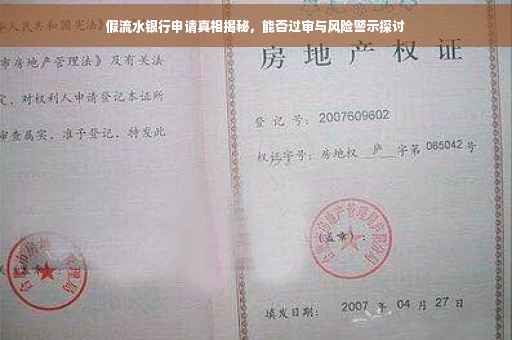 假流水银行申请真相揭秘，能否过审与风险警示探讨
人民共和国宪法》
市房地产管理法》及有关法
定，对权利人申请登记本证所
审查属实，准予登记，特发此
房地产权证
登记号：2007609602
权证字号：房地权 庐 字第 065042 号
(盖章)：
填发日期：2007 年 04 月 27 日